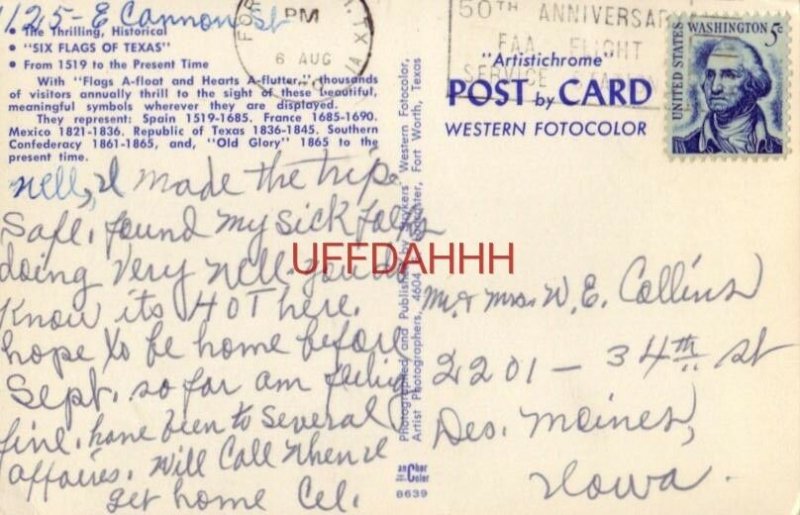 1125-E Cannon St
• The Thrilling, Historical
• "SIX FLAGS OF TEXAS"
• From 1519 to the Present Time
With "Flags A-float and Hearts A-flutter," thousands
of visitors annually thrill to the sight of these beautiful,
meaningful symbols wherever they are displayed.
They represent: Spain 1519-1685. France 1685-1690.
Mexico 1821-1836. Republic of Texas 1836-1845. Southern
Confederacy 1861-1865, and, "Old Glory" 1865 to the
present time.
Nell, I made the trip
Safe, found my sick folks
doing Very Well. you do
Know its HOT here.
hope to be home before
Sept. so far am feeling
fine. have been to several
affaires. Will Call When I
get home Cel.
Photographed and Published by Western Fotocolor,
Artist Photographers, 4604 Fort Worth, Texas
anChor
Color
8639
FOR
TX
PM
6 AUG
50TH ANNIVERSAR
FAA FLIGHT
SERVICE
UNITED STATES
WASHINGTON 5c
"Artistichrome"
POST by CARD
WESTERN FOTOCOLOR
UFFDAHHH
Mr & Mrs. W. E. Collins
2201 - 34th St
Des. Moines,
Iowa.